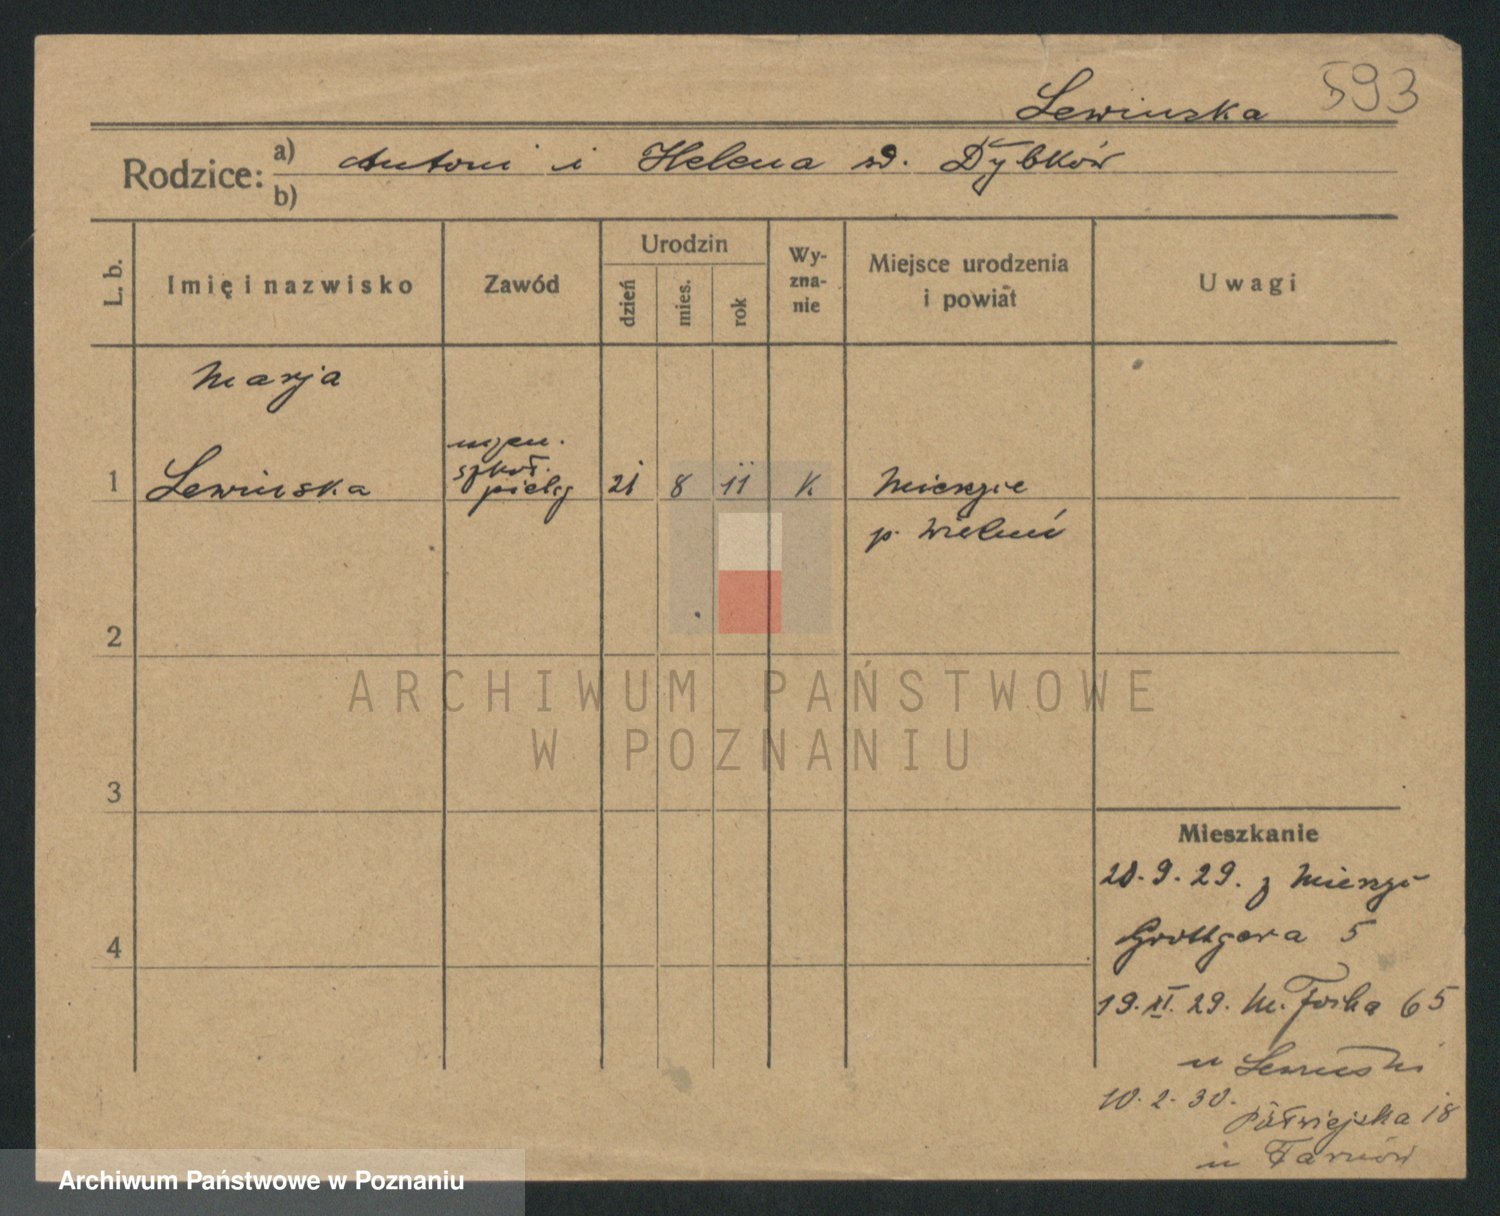 Lewinska 593
Rodzice: a) Antoni i Helena zd. Dybków
b)
L. b. Imię i nazwisko Zawód Urodzin dzień mies. rok Wyznanie Miejsce urodzenia i powiat Uwagi
Marja
1 Lewinska uczen. szkoł. pielg 21 8 11 K Mierzyce
p. Wieluń
2
ARCHIWUM PAŃSTWOWE
W POZNANIU
3
Mieszkanie
20.9.29. z Mierzyc
4 Grottgera 5
19.XI.29. M. Focha 65
u Lewinski
10.2.30. Półwiejska 18
u
Archiwum Państwowe w Poznaniu